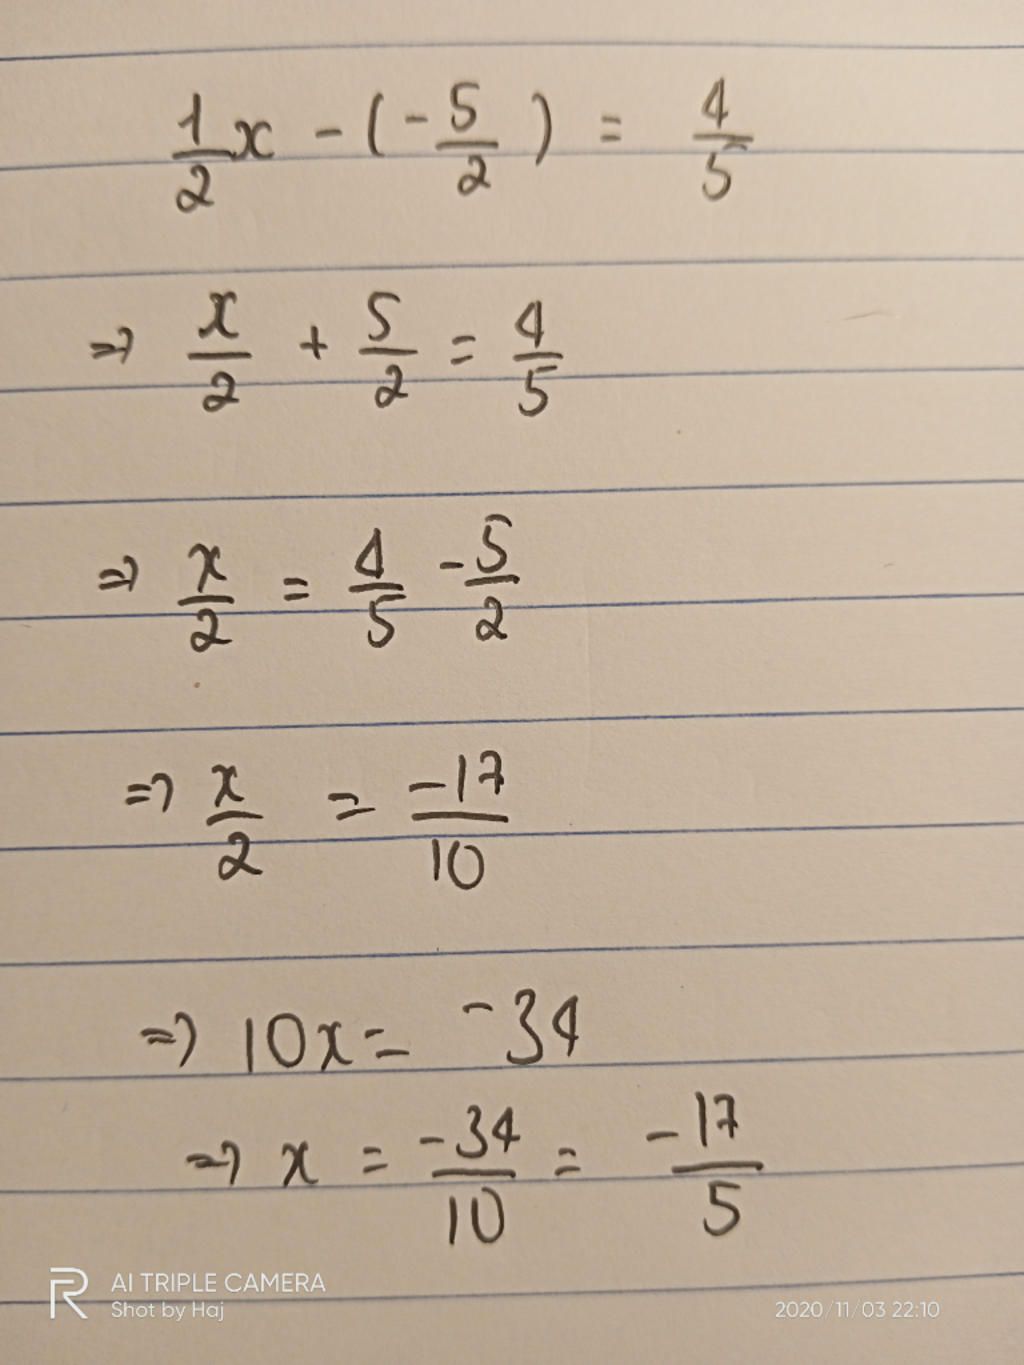 1/2 x - (-5/2) = 4/5
⇒ x/2 + 5/2 = 4/5
⇒ x/2 = 4/5 - 5/2
⇒ x/2 = -17/10
⇒ 10x = -34
⇒ x = -34/10 = -17/5
AI TRIPLE CAMERA
Shot by Haj
2020/11/03 22:10